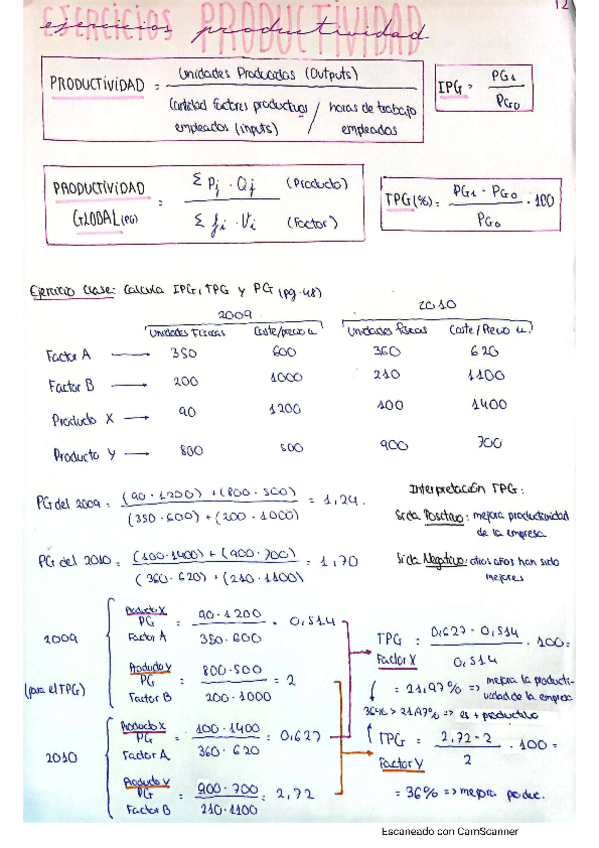 12
EJERCICIOS PRODUCTIVIDAD
ejercicios productividad
PRODUCTIVIDAD = Unidades Producidas (Outputs) / Cantidad factores productivos empleados (inputs) / horas de trabajo empleados
IPG = PG1 / PG0
PRODUCTIVIDAD GLOBAL (PG) = Σ Pj · Qj (Producto) / Σ fi · Vi (Factor)
TPG (%) = PG1 - PG0 / PG0 · 100
Ejercicio clase: Calcula IPG, TPG y PG (pg. 48)
2009 2010
Unidades Físicas Coste/precio u. Unidades físicas Coste/Precio u.
Factor A → 350 600 360 620
Factor B → 200 1000 210 1100
Producto X → 90 1200 100 1400
Producto Y → 800 500 900 700
PG del 2009 = (90 · 1200) + (800 · 500) / (350 · 600) + (200 · 1000) = 1,24.
PG del 2010 = (100 · 1400) + (900 · 700) / (360 · 620) + (210 · 1100) = 1,70
Interpretación TPG:
Si da Positivo: mejora productividad
de la empresa
Si da Negativo: otros años han sido
mejores
2009
(para el TPG)
Producto X PG Factor A = 90 · 1200 / 350 · 600 = 0,514
Producto Y PG Factor B = 800 · 500 / 200 · 1000 = 2
2010
Producto X PG Factor A = 100 · 1400 / 360 · 620 = 0,627
Producto Y PG Factor B = 900 · 700 / 210 · 1100 = 2,72
TPG Factor X = 0,627 - 0,514 / 0,514 · 100 =
= 21,97% => mejora la producti-
vidad de la empresa
36% > 21,97% => es + productivo
TPG Factor Y = 2,72 - 2 / 2 · 100 =
= 36% => mejora produc.
Escaneado con CamScanner